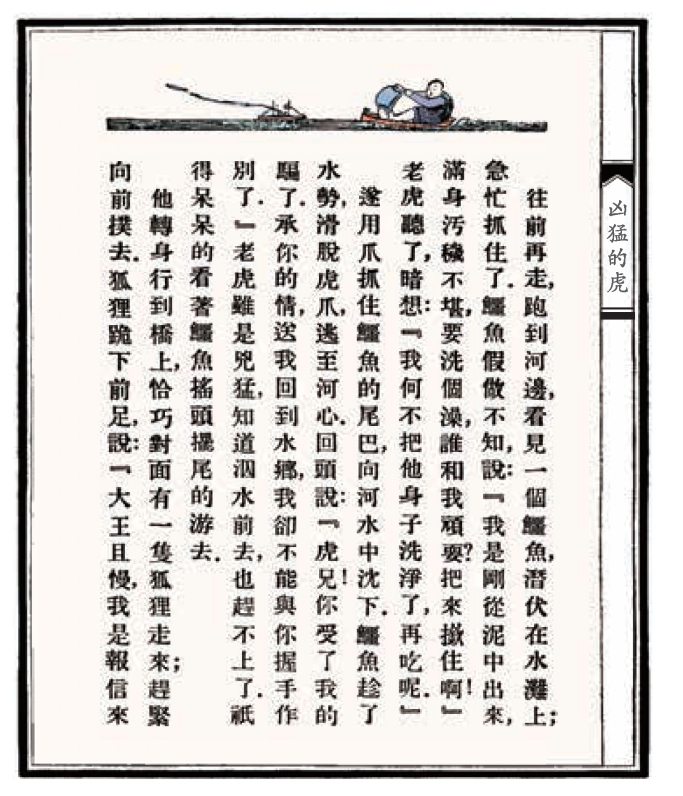 凶猛的虎
往前再走,跑到河邊,看見一個鱷魚,潛伏在水灘上;
急忙抓住了.鱷魚假做不知,說:『我是剛從泥中出來,
滿身汚穢不堪,要洗個澡,誰和我頑耍?把來撳住啊!』
老虎聽了,暗想:『我何不把他身子洗淨了,再吃呢.』
遂用爪抓住鱷魚的尾巴,向河水中沈下.鱷魚趁了
水勢,滑脫虎爪,逃至河心.回頭說:『虎兄!你受了我的
騙了.承你的情,送我回到水鄉,我卻不能與你握手作
別了.』老虎雖是兇猛,知道泅水前去,也趕不上了.祇
得呆呆的看著鱷魚搖頭擺尾的游去.
他轉身行到橋上,恰巧對面有一隻狐狸走來;趕緊
向前撲去.狐狸跪下前足,說:『大王且慢,我是報信來